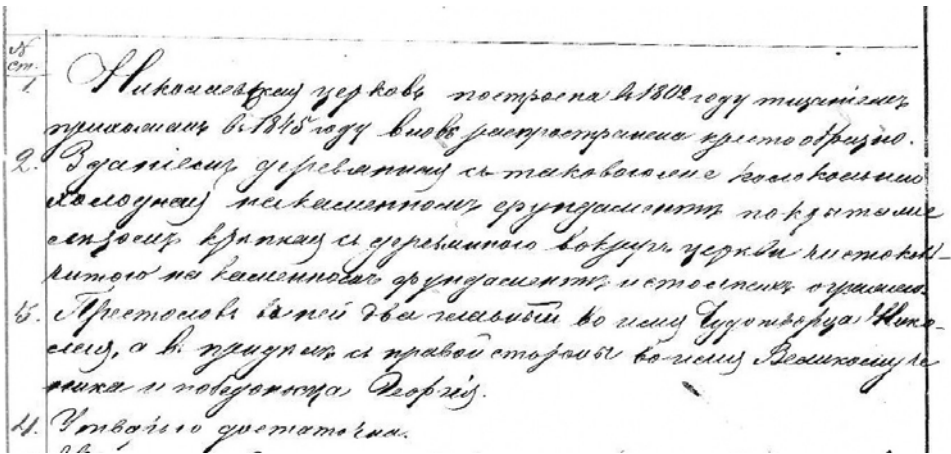 №
ст.
1. Николаевская церковь построена въ 1802 году тщаніемъ
прихожанъ въ 1845 году вновь распространена крестообразно.
2. Зданіемъ деревянная съ таковою же колокольнею
холодная на каменномъ фундаментѣ покрыта же
крѣпкая съ деревянною вокругъ церкви
на каменномъ фундаментѣ оградою.
3. Престоловъ въ ней два главный во имя Чудотворца Нико-
лая, а въ придѣлѣ съ правой стороны во имя Великомуче
ника и побѣдоносца Георгія.
4. Утварью достаточна.